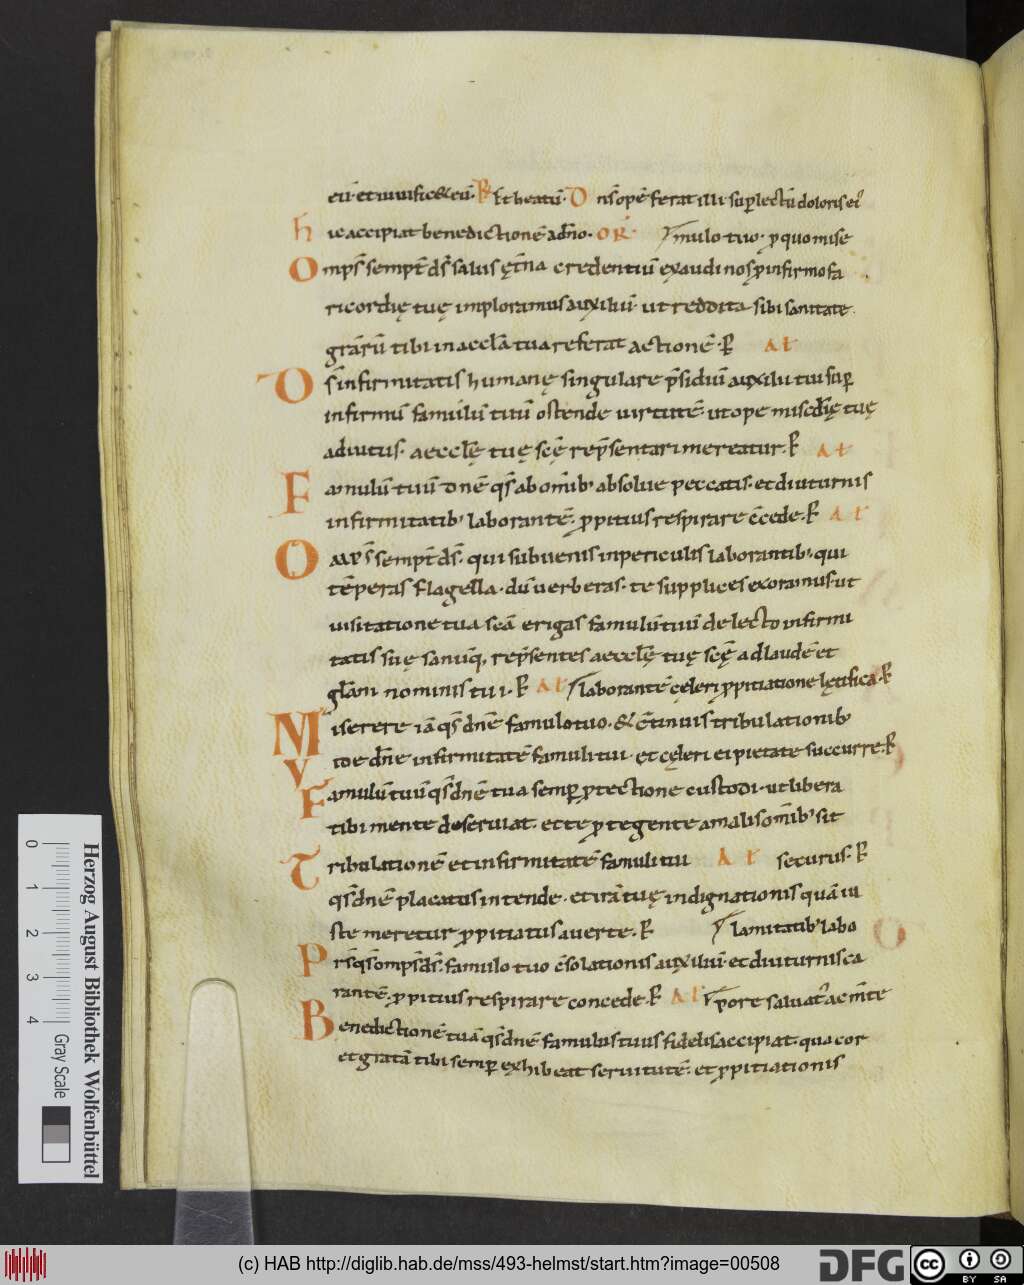 eū· et uiuificet eū· R Et beatū· D n̄s opē ferat illi sup lectū doloris ei'
h ic accipiat benedictionē a dn̄o· OR· mulo tuo· p quo mise
O mps sempt̄ ds̄ salus ęt̄na credentiū exaudi nos p infirmo fa
ricordię tuę imploramus auxiliū· ut reddita sibi sanitate·
gr̄arū tibi in aeccl̄a tua referat actionē· P AL
D s̄ infirmitatis humanę singulare p̄sidiū auxilii tui sup
infirmū famulū tuū ostende uirtutē· ut ope mis̄cdię tuę
adiutus· aeccl̄ę tuę sc̄ę rep̄sentari mereatur· P AL
F amulū tuū dn̄e qs̄ ab om̄ib' absolue peccatis· et diuturnis
infirmitatib' laborantē· ppitius respirare c̄cede· P AL
O MPS sempt̄ ds̄· qui subuenis in periculis laborantib'· qui
tēperas flagella· dū uerberas· te supplices exoramus· ut
uisitatione tua sc̄a erigas famulū tuū de lecto infirmi
tatis suę sanūq, rep̄sentes aeccl̄ę tuę sc̄ę ad laudē et
gl̄am nominis tui· P AL laborantē cęleri ppitiatione lętifica· P
M iserere iā qs̄ dn̄e famulo tuo· & c̄tinuis tribulationib'
V ide dn̄e infirmitatē famuli tui· et cęleri ei pietate succurre· P
F amulū tuū qs̄ dn̄e tua semp ptectione custodi· ut libera
tibi mente deseruiat· et te ptegente a malis om̄ib' sit
T ribulationē et infirmitatē famuli tui AL securus· P
qs̄ dn̄e placatus intende· et irā tuę indignationis quā iu
ste meretur ppitiatus auerte· P lamitatib' labo
P rs̄ qs̄ omps ds̄· famulo tuo c̄solationis auxiliū· et diuturnis ca
rantē· ppitius respirare concede· P AL pore saluat' ac m̄te
B enedictionē tuā qs̄ dn̄e famulus tuus fidelis accipiat· qua cor
et gratā tibi semp exhibeat seruitutē· et ppitiationis
Herzog August Bibliothek Wolfenbüttel
0 1 2 3 4 Gray Scale
(c) HAB http://diglib.hab.de/mss/493-helmst/start.htm?image=00508
DFG cc BY SA